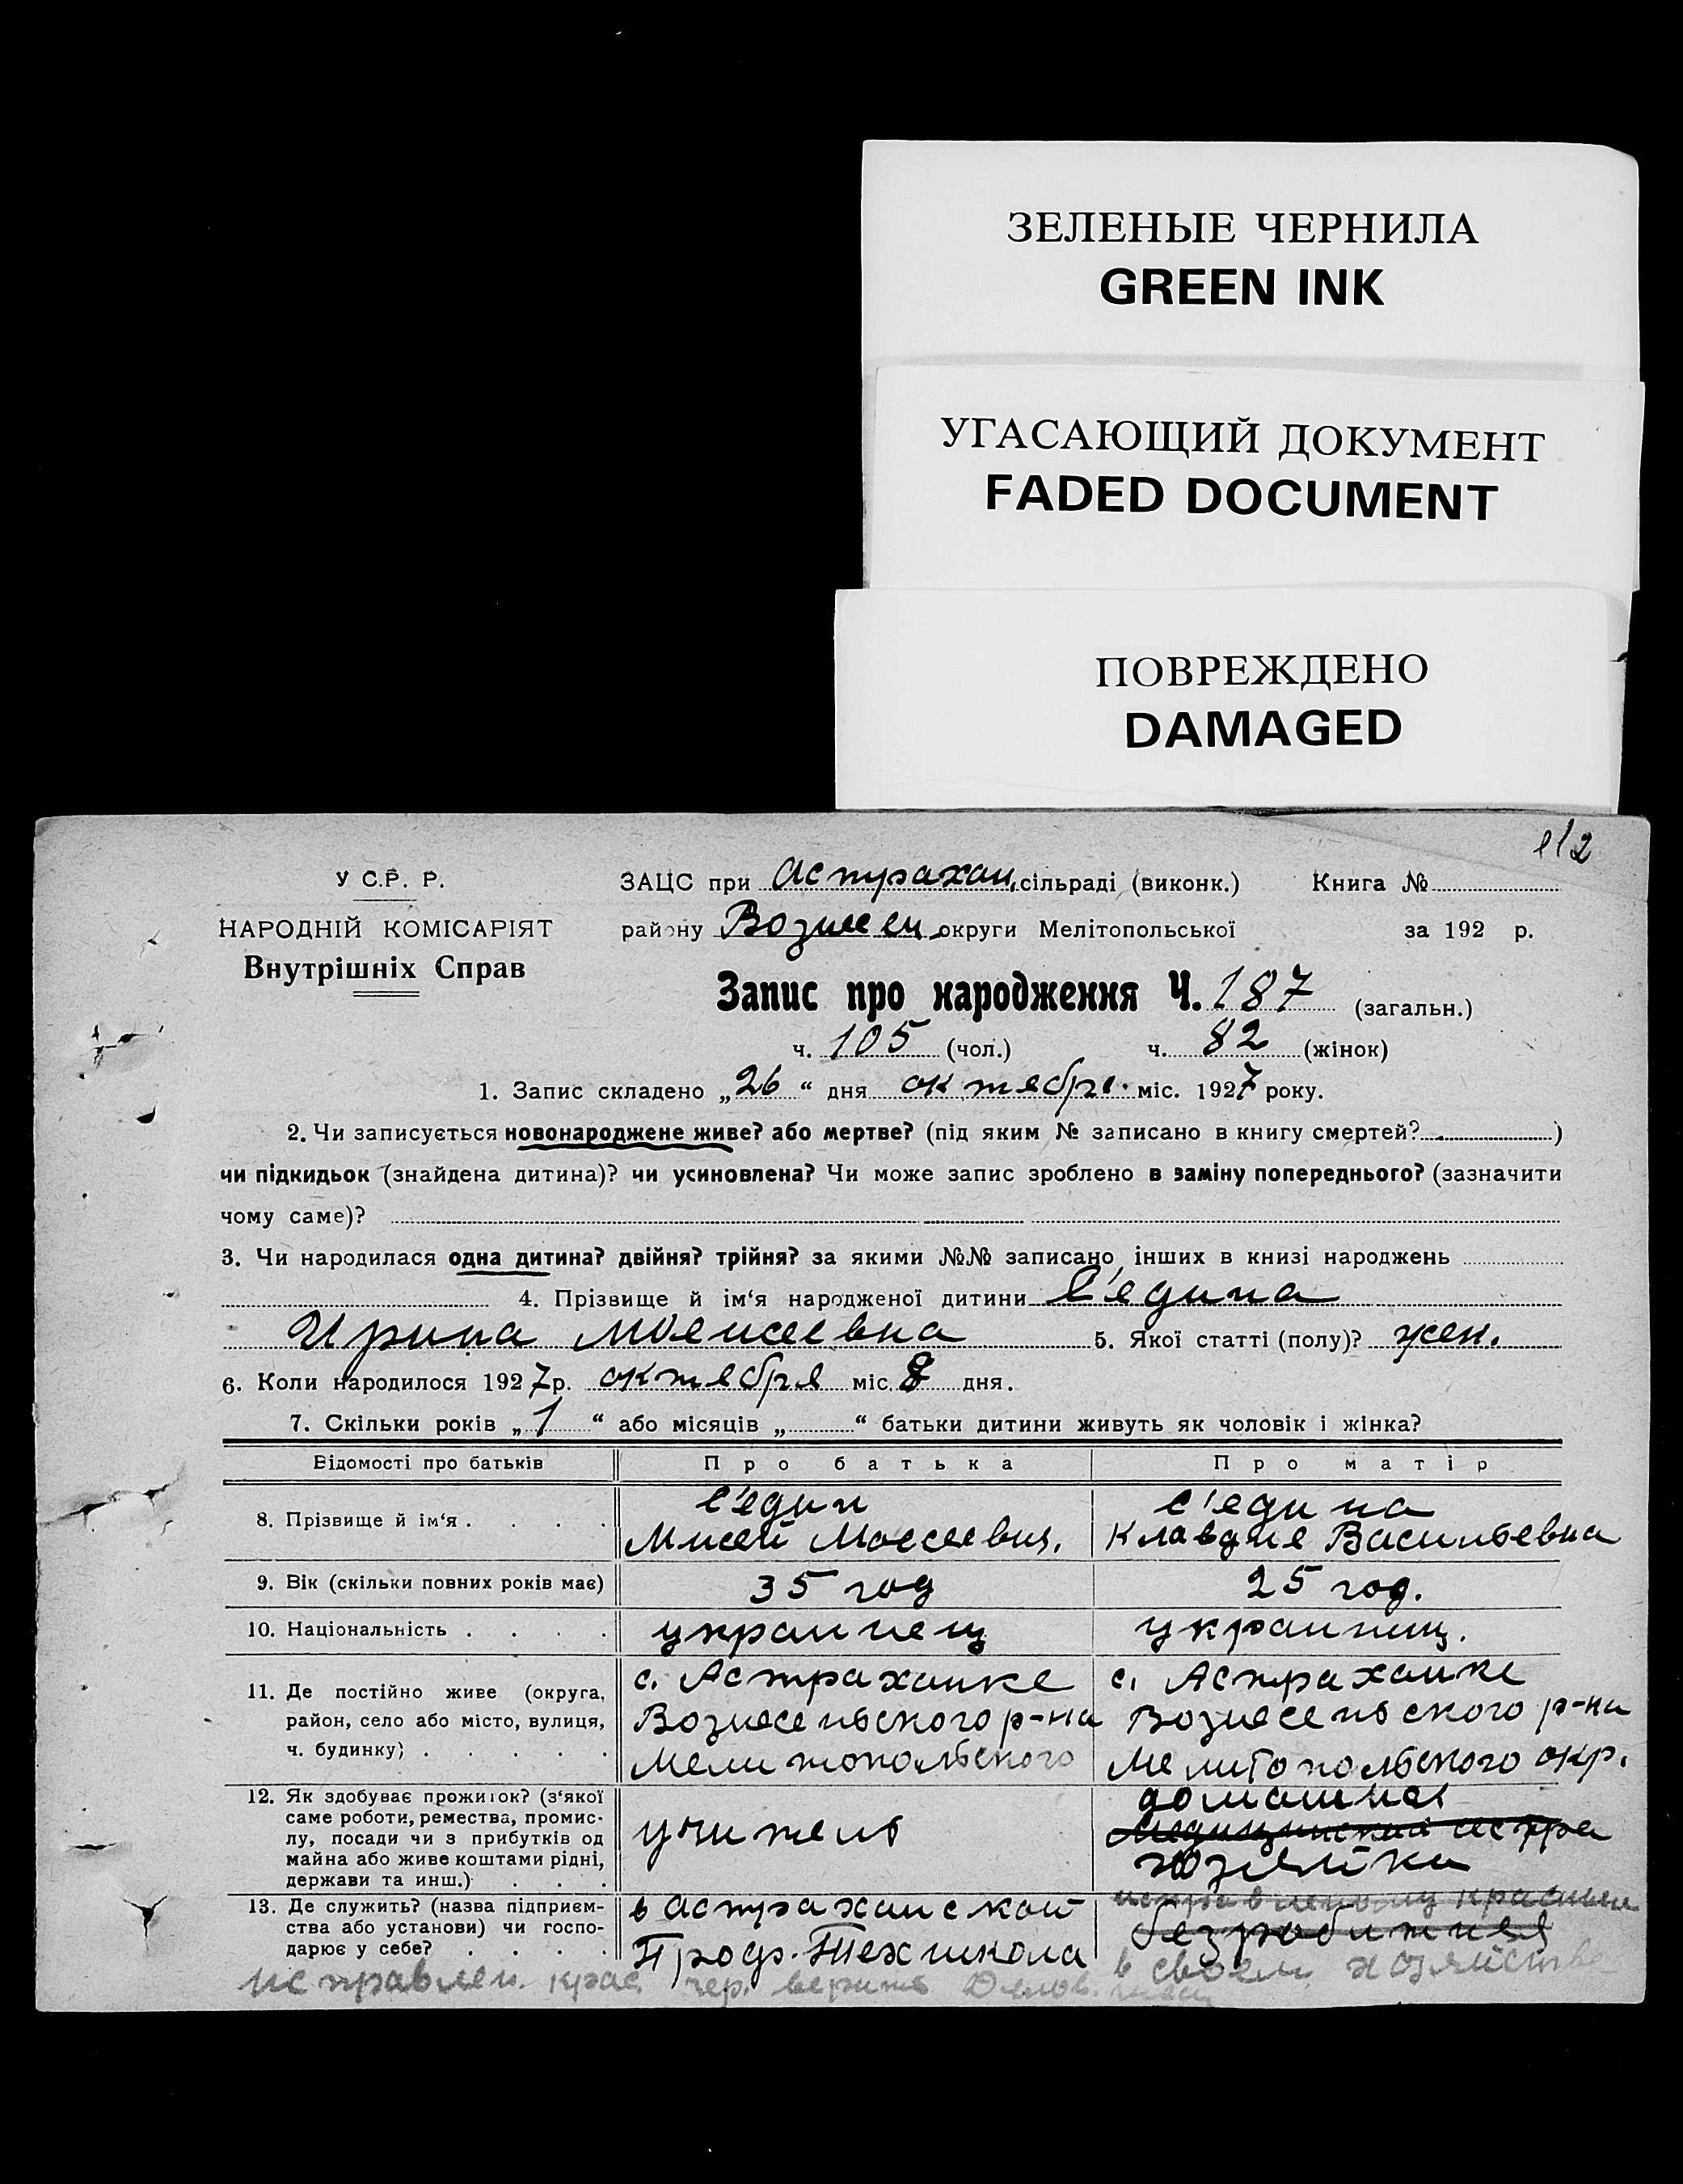 ЗЕЛЕНЫЕ ЧЕРНИЛА
GREEN INK
УГАСАЮЩИЙ ДОКУМЕНТ
FADED DOCUMENT
ПОВРЕЖДЕНО
DAMAGED
У С.Р. Р.
НАРОДНІЙ КОМІСАРІЯТ
Внутрішніх Справ
ЗАЦС при Астрахан. сільраді (виконк.) Книга №
району Вознесен. округи Мелітопольської за 192 р.
Запис про народження Ч. 187 (загальн.)
ч. 105 (чол.) ч. 82 (жінок)
1. Запис складено „26“ дня октября міс. 1927 року.
2. Чи записується новонароджене живе? або мертве? (під яким № записано в книгу смертей? )
чи підкидьок (знайдена дитина)? чи усиновлена? Чи може запис зроблено в заміну попереднього? (зазначити
чому саме)?
3. Чи народилася одна дитина? двійня? трійня? за якими №№ записано інших в книзі народжень
4. Прізвище й ім‘я народженої дитини С'едина
Ирина Моисеевна 5. Якої статті (полу)? жен.
6. Коли народилося 1927 р. октября міс. 8 дня.
7. Скільки років „1“ або місяців „ “ батьки дитини живуть як чоловік і жінка?
Відомості про батьків Про батька Про матір
8. Прізвище й ім‘я . . . . С'един С'едина
Мисей Моесеевич. Клавдия Васильевна
9. Вік (скільки повних років має) 35 год 25 год.
10. Національність . . . . украинец украинец.
11. Де постійно живе (округа, с. Астраханке с. Астраханке
район, село або місто, вулиця, Вознесеньского р-на Вознесеньского р-на
ч. будинку) . . . . . Мелитопольского Мелитопольского окр.
12. Як здобуває прожиток? (з‘якої домашняя
саме роботи, ремества, промис-
лу, посади чи з прибутків од учитель Медицинская сестра
майна або живе коштами рідні, хозяйка
держави та инш.) . . .
13. Де служить? (назва підприєм- в Астраханской
ства або установи) чи госпо- безработная
дарює у себе? . . . . Проф. Тех школа в своем хозяйстве
исправлен. крас. чер. верить